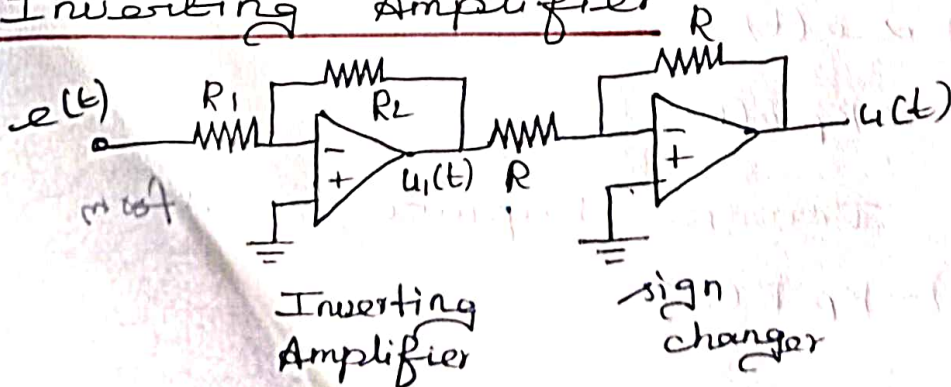 Inverting Amplifier
R
e(t)
R1
R2
u(t)
- +
- +
u1(t)
R
Inverting
Amplifier
sign
changer